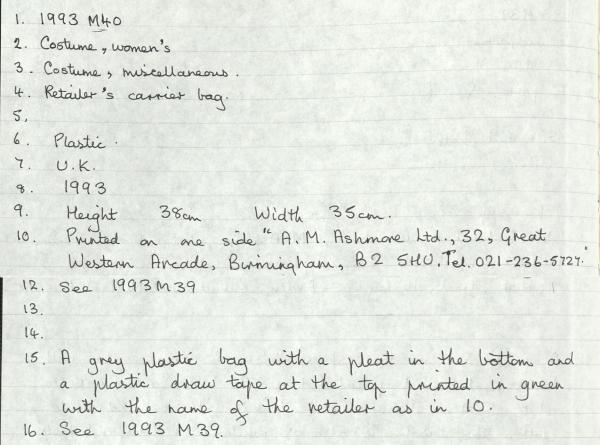 1. 1993 M40
2. Costume, women's
3. Costume, miscellaneous.
4. Retailer's carrier bag.
5.
6. Plastic.
7. U.K.
8. 1993
9. Height 38cm Width 35cm.
10. Printed on one side "A.M. Ashmore Ltd., 32, Great
Western Arcade, Birmingham, B2 5HU. Tel. 021-236-5727."
12. See 1993 M39
13.
14.
15. A grey plastic bag with a pleat in the bottom and
a plastic draw tape at the top printed in green
with the name of the retailer as in 10.
16. See 1993 M39.